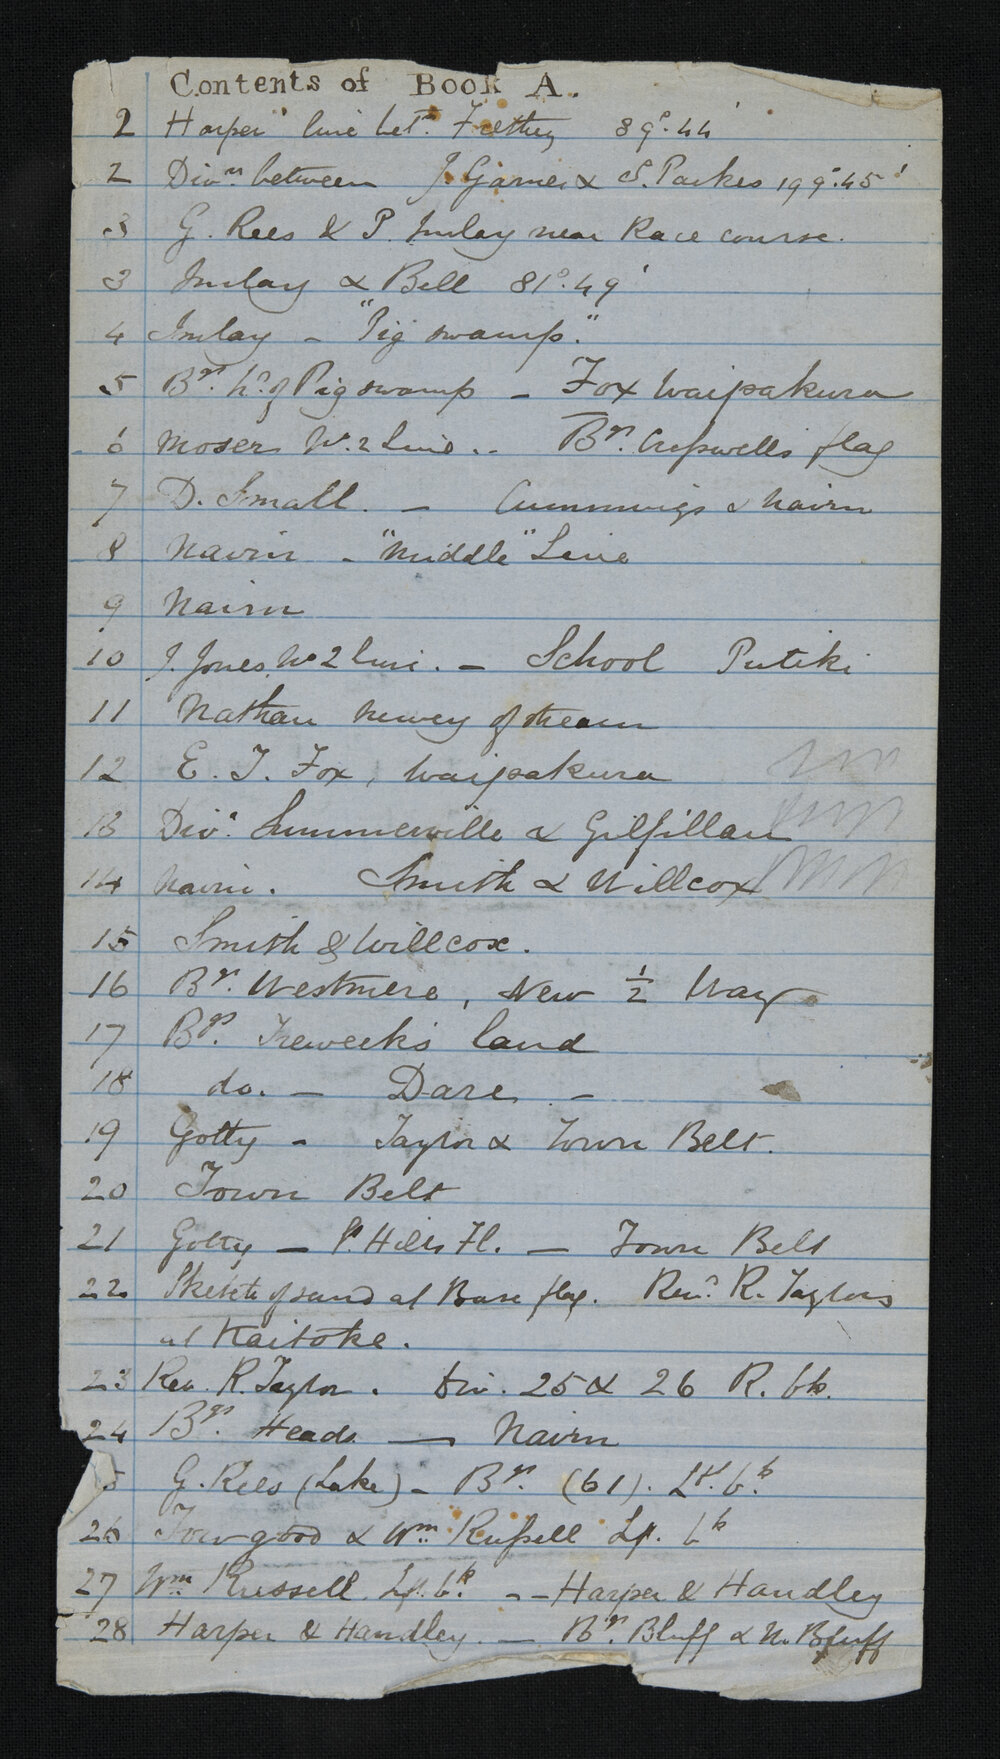 Contents of Book A.
2 Harper line bet.n 89°.44'
2 Div.n between J. Garner & S. Parkes 199°.45'
3 G. Rees & P. Imlay near Race course.
3 Imlay & Bell 81°.49'
4 Imlay - "Pig swamp."
5 B.n of Pig swamp - Fox Waipakura
6 Moser No. 2 Line. - B.n Cresswells flag
7 D. Small. - Cummings & Nairn
8 Nairn - "Middle" Line
9 Nairn
10 J. Jones. No 2 line. - School Putiki
11 Nathan survey of stream
12 E. J. Fox, Waipakura
13 Div.n Summerville & Gilfillan
14 Nairn. Smith & Willcox
15 Smith & Willcox.
16 B.n Westmere, New 1/2 Way
17 B.n Treweeks land
18 do. - Dare -
19 Gotty - Taylor & Town Belt.
20 Town Belt
21 Gotty - Hills Fl. - Town Belt
22 Sketch of sand at Base flag. Rev.d R. Taylors
at Kaitoke.
23 Rev. R. Taylor. Div. 25 & 26 R. bk.
24 B.n Heads - Nairn
5 G. Rees (Lake) - B.n (61). Lr. b.k
26 Towgood & Wm. Russell Lr. bk
27 Wm Russell Lr. b.k - - Harper & Handley
28 Harper & Handley. - B.n Bluff & N. Bluff